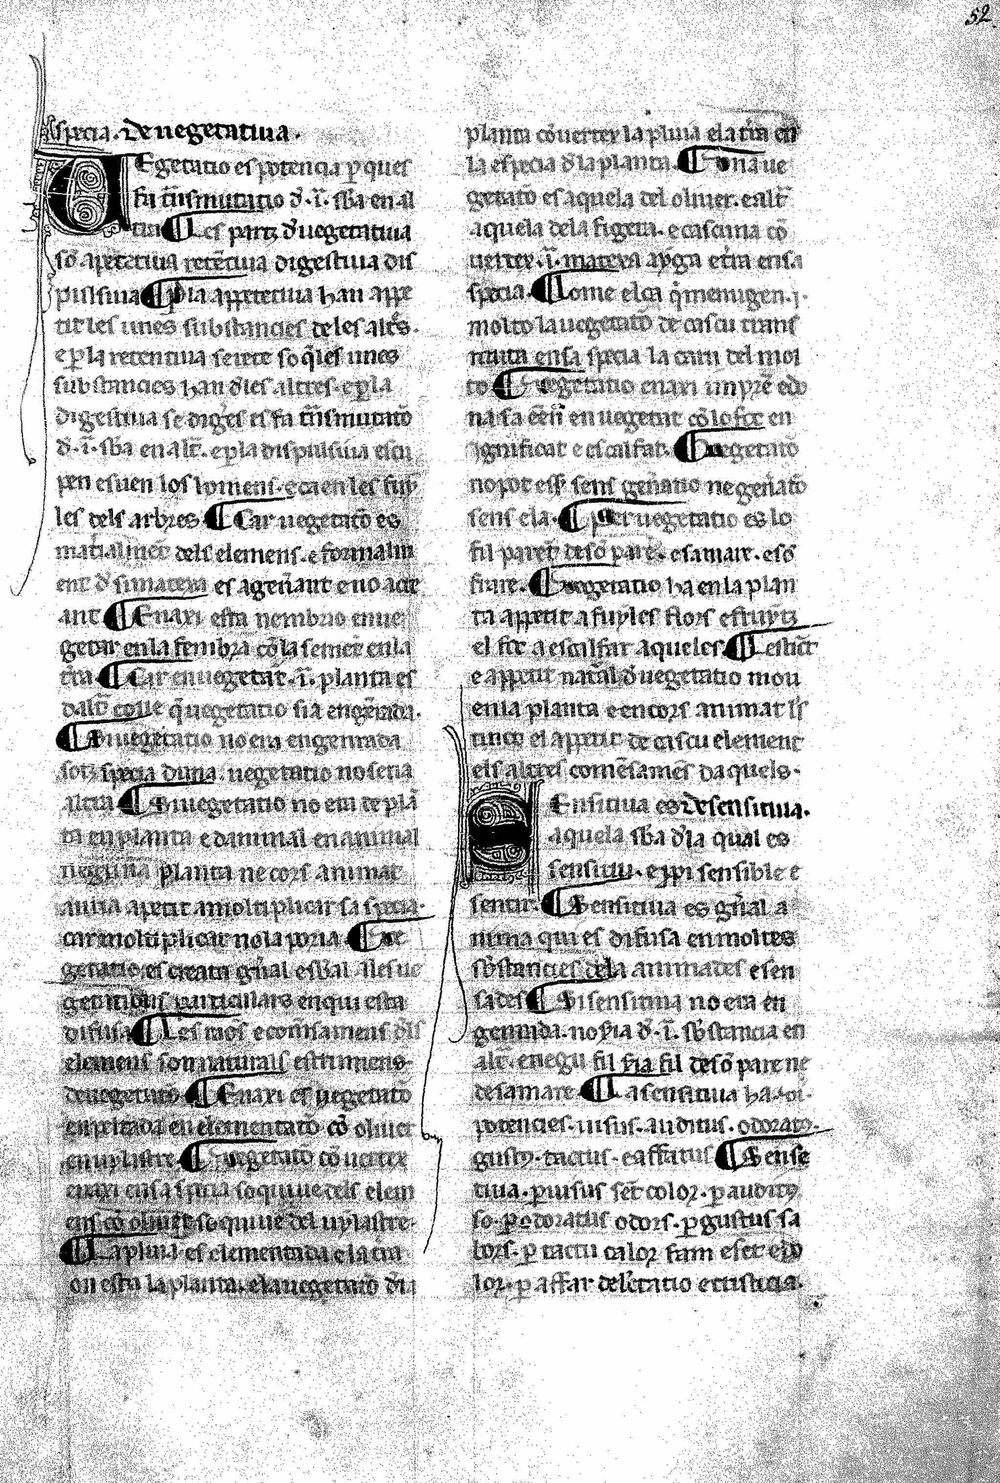 52
specia. De uegetatiua.
Egetatio es potencia ꝑ ques
fa tn̄smutatio d̓.i. sb̄a en al
tra Les partz d̓ uegetatiua
só apetitiua retētiua digestiua dis
pulsiua Per la appetetiua han appe
tit les unes substancies de les altr̄s.
e ꝑ la retentiua se rete so q̄ les unes
substancies han d̓ les altres. e ꝑ la
digestiua se digest es fa tn̄smutatō
d̓.i. sb̄a en alt̄. e ꝑ la dispulsiua escu
pen esuen los homens. e caen les fuy
les dels arbres Car uegetatō es
mat̓ialmēt dels elemens. e formalm
ent d̓ si matexa es agen̄ant e no acre
ant Enaxi esta nembrio en ue
getar en la fembra cō la semēt en la
tr̄ra Car en uegetat .i. planta es
dalt̄ coue q̄ uegetatio sia engēnrada.
Si uegetatio no era engenrada
sotz specia duna. uegetatio no seria
altra Si uegetatio no era de plā
ta en planta e danimal en animal
neguna planta ne cors animat
auria apetit a moltiplicar sa specia.
car moltiplicar no la poria Ue
getatio es creata gn̄al esb̄al a les ue
getatibus particulars en qui esta
difusa Les mos e comēsamens d̓ls
elemens son naturals estrumens
de uegetatō Enaxi es uegetatō
empeltada en elementatō cō oliuer
en uylastre Uegetatō cōuertex
enaxi en sa specia so qui ue dels elem
ens cō oliuer so qui ue del uylastre.
La pluia es elementada e la tr̄ra
on esta la planta. e la uegetatō d̓ la
planta cōuertex la pluia e la tr̄ra en
la especia d̓ la planta. Una ue
getatō es aquela del oliuer. e alt̄
aquela de la figera. e cascuna cō
uertex .i. matexa aygua e tr̄ra en sa
specia. Home el ca q̄ menugen .j.
molto la uegetatō de cascu trans
muta en sa specia la carn del mol
to Uegetatio enaxi īnpren̄ e do
na sa eēn̄ en uegetat cō lo foc en
ignificat e escalfat. Uegetatō
no pot ess̄ sens gen̄atio ne gen̄atō
sens ela. Per uegetatio es lo
fil paret de sō pare. e sa mare. e sō
frare. Uegetatio ha en la plan
ta appetit a fuyles flors e fruytz
el foc a escalfar aqueles Lestīct
e appetit natal̄ d̓ uegetatio mou
en la planta e en cors animat lis
tinct el appetit de cascu element
els altres comēsamēs daquels.
Ensitiua es De sensitiua.
aquela sb̄a d̓ la qual es
sensitiu. e ꝓpi sensible e
sentir. Sensitiua es gn̄al a
nima qui es difusa en moltes
sb̄stancies de la animades e sen
sades Si sensitiua no era en
genrada. no f̄ia d̓.i. sb̄stancia en
alt̄. e negu fil f̄ia fil de sō pare ne
de sa mare. La sensitiua ha .vi.
potencies. uisus. auditus. odoratꝰ.
gustꝰ. tactus. e affatus Sense
tiua. ꝑ uisus set̄ color. ꝑ auditꝰ
so. ꝑ odoratus odors. ꝑ gustus sa
bors. ꝑ tactu calor fam e set e do
lor. ꝑ affar delectatio e tristicia.